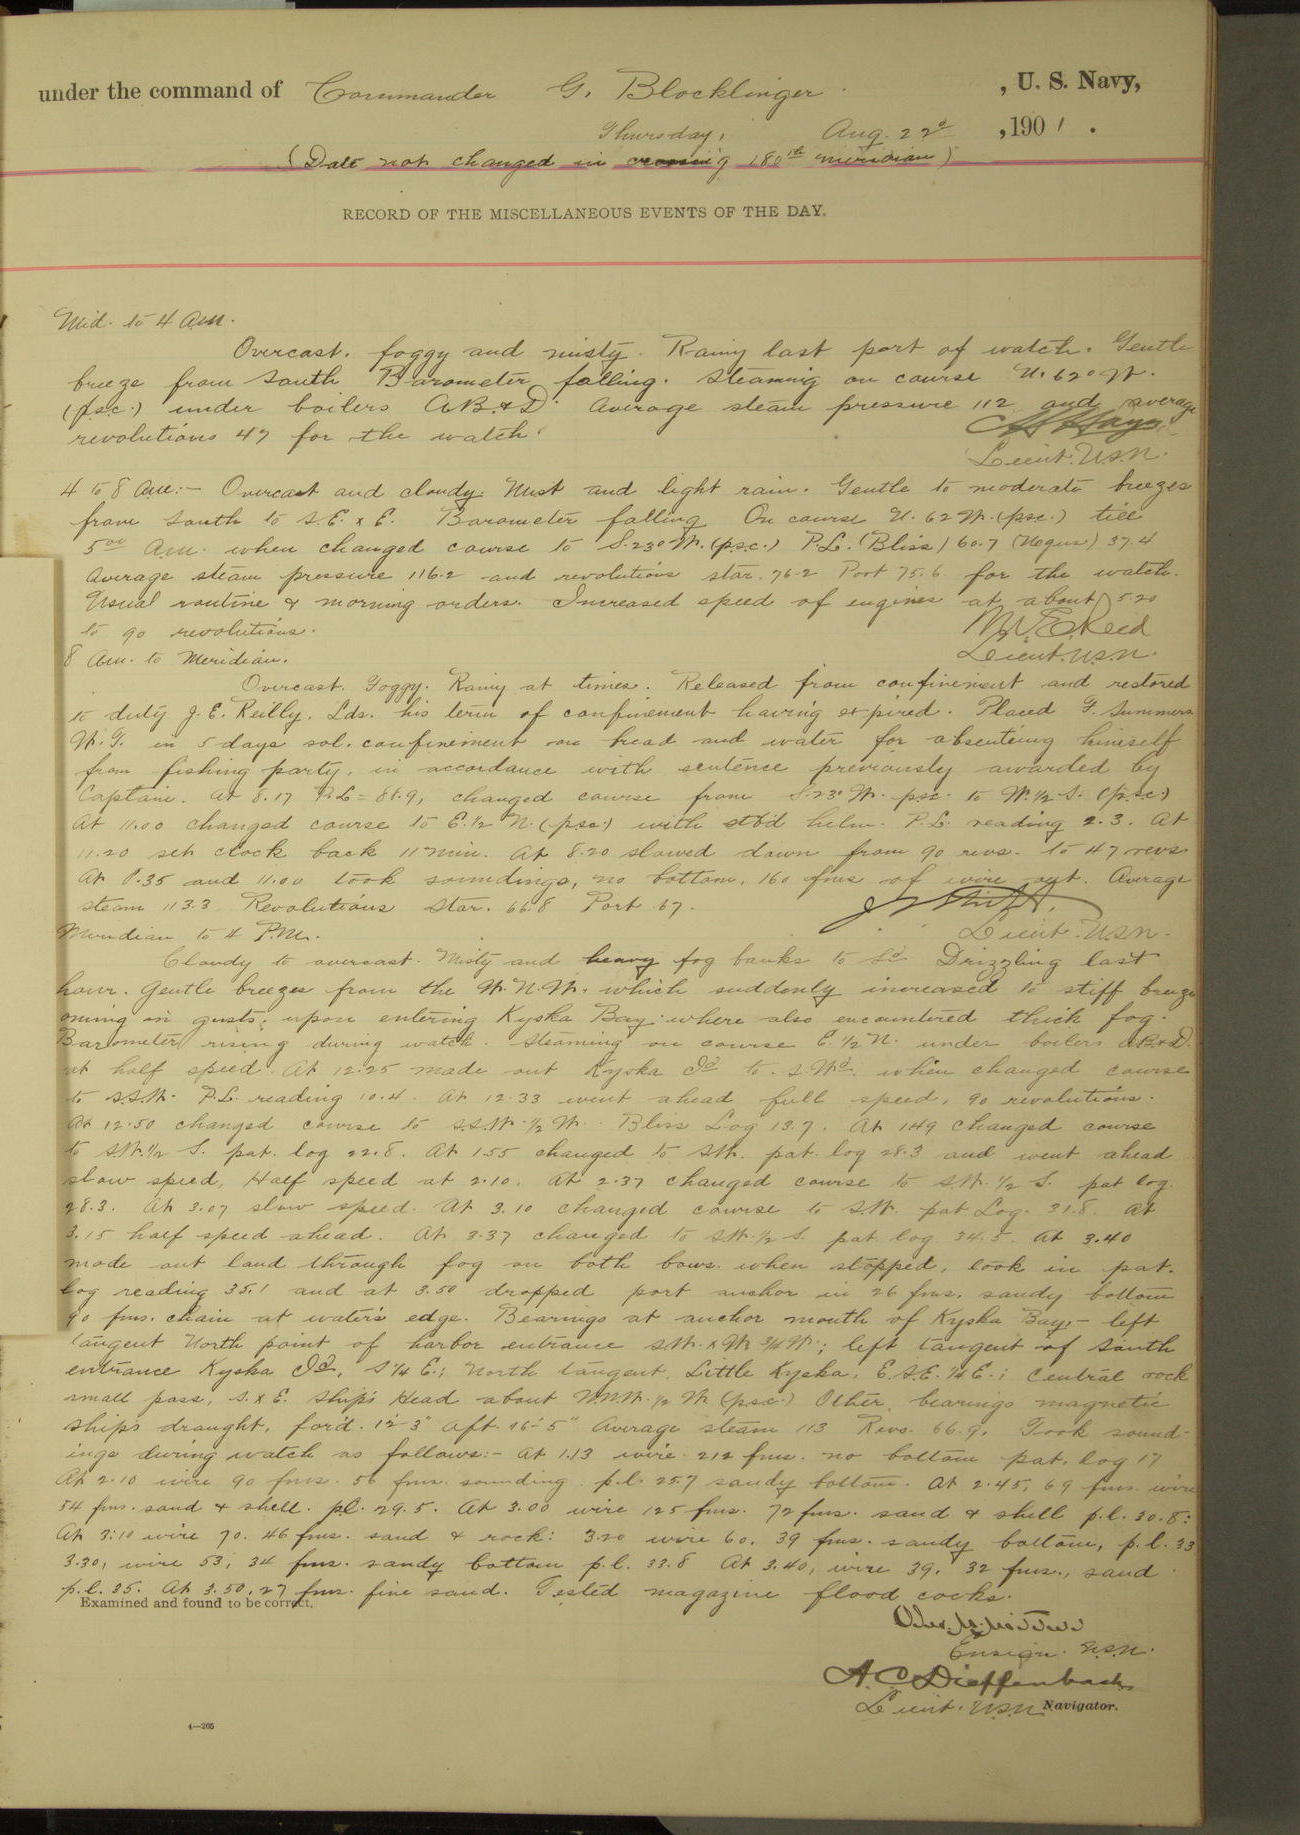 under the command of Commander G. Blocklinger , U. S. Navy,
Thursday, Aug. 22d , 1901 .
(Date not changed in crossing 180th meridian)
RECORD OF THE MISCELLANEOUS EVENTS OF THE DAY.
Mid. to 4 A.M.
Overcast. foggy and misty. Rainy last part of watch. Gentle
breeze from South Barometer falling. Steaming on course N. 62° W.
(p.s.c.) under boilers A.B.&D. Average steam pressure 112 and average
revolutions 47 for the watch.
Lieut. U.S.N.
4 to 8 A.M.:- Overcast and cloudy. Mist and light rain. Gentle to moderate breezes
from South to S.E. x E. Barometer falling On course N. 62 W. (psc.) till
5 00 A.M. when changed course to S. 23° W. (p.s.c.) P.L. (Bliss) 60.7 (Negus) 37.4
Average steam pressure 116.2 and revolutions star. 76.2 Port 75.6 for the watch.
Usual routine & morning orders. Increased speed of engines at about 5.20
to 90 revolutions.
Lieut. U.S.N.
8 A.M. to Meridian.
Overcast. Foggy. Rainy at times. Released from confinement and restored
to duty J. E. Reilly, Lds. his term of confinement having expired. Placed F. Summers
W.T. in 5 days sol. confinement on bread and water for absenting himself
from fishing party, in accordance with sentence previously awarded by
Captain. At 8.17 P.L = 86.9, changed course from S. 23° W. psc. to W. 1/2 S. (p.s.c.)
At 11.00 changed course to E. 1/2 N. (psc.) with stb'd helm. P.L. reading 2.3. At
11.20 set clock back 11 min. At 8.20 slowed down from 90 revs. to 47 revs.
At 8.35 and 11.00 took soundings, no bottom, 160 fms of wire out. Average
steam 113.3 Revolutions Star. 66.8 Port 67.
Lieut. U.S.N.
Meridian to 4 P.M.
Cloudy to overcast. Misty and heavy fog banks to Sd. Drizzling last
hour. Gentle breezes from the W.N.W. which suddenly increased to stiff breeze
coming in gusts, upon entering Kyska Bay where also encountered thick fog.
Barometer rising during watch. Steaming on course E. 1/2 N. under boilers A.B.&D.
at half speed. At 12.25 made out Kyska Id to S.Wd. when changed course
to S.S.W. P.L. reading 10.4. At 12.33 went ahead full speed, 90 revolutions.
At 12.50 changed course to S.S.W. 1/2 W. Bliss Log 13.7. At 1.49 changed course
to S.W. 1/2 S. pat. log 22.8. At 1.55 changed to S.W. pat. log 28.3 and went ahead
slow speed, Half speed at 2.10. At 2.37 changed course to S.W. 1/2 S. pat log.
28.3. At 3.07 slow speed. At 3.10 changed course to S.W. pat Log. 31.8. At
3.15 half speed ahead. At 3.37 changed to S.W. 1/2 S. pat. log 34.5. At 3.40
made out land through fog on both bows when stopped, took in pat.
log reading 35.1 and at 3.50 dropped port anchor in 26 fms. sandy bottom
90 fms. chain at water's edge. Bearings at anchor mouth of Kyska Bay,- left
tangent North point of harbor entrance S.W. x W. 3/4 W.; left tangent of South
entrance Kyska Id, S 1/4 E.; North tangent, Little Kyska, E. S.E. 1/4 E.; Central rock
small pass, S. x E. Ship's Head about W.N.W. 1/2 W. (psc.) Other bearings magnetic
Ship's draught, for'd. 12'-3" aft. 16'-5" Average steam 113 Revs. 66.9, Took sound-
ings during watch as follows:- At 1.13 wire 212 fms. no bottom pat. log 17
At 2.10 wire 90 fms. 56 fms. sounding p.l. 25.7 sandy bottom. At 2.45, 69 fms. wire
54 fms. sand & shell. pl. 29.5. At 3.00 wire 125 fms. 72 fms. sand & shell p.l. 30.8;
At 3:10 wire 70. 46 fms. sand & rock: 3.20 wire 60, 39 fms. sandy bottom, p.l. 33
3.30, wire 53, 34 fms. sandy bottom p.l. 33.8 At 3.40, wire 39, 32 fms., sand
p.l. 35. At 3.50, 27 fms. fine sand. Tested magazine flood cocks.
Examined and found to be correct,
Ensign. U.S.N.
A. C. Dieffenbach
Lieut. U.S.N. Navigator.
4—205